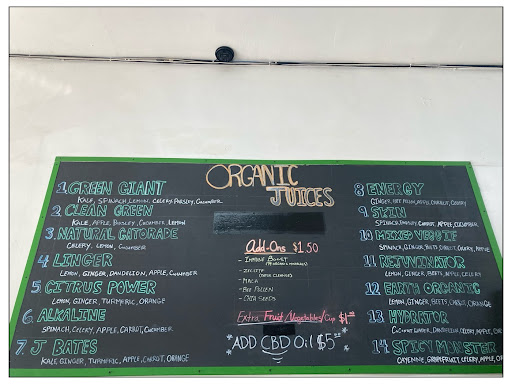 ORGANIC
JUICES
1. GREEN GIANT
KALE, SPINACH, LEMON, CELERY, PARSLEY, CUCUMBER
2. CLEAN GREEN
KALE, APPLE, PARSLEY, CUCUMBER, LEMON
3. NATURAL GATORADE
CELERY, LEMON, CUCUMBER
4 LINGER
LEMON, GINGER, DANDELION, APPLE, CUCUMBER
5. CITRUS POWER
LEMON, GINGER, TURMERIC, ORANGE
6. ALKALINE
SPINACH, CELERY, APPLE, CARROT, CUCUMBER
7. J BATES
KALE GINGER, TURMERIC, APPLE, CARROT, ORANGE
Add-Ons $1.50
- IMMUNE BOOST
- ZEOLITE
- MACA
- BEE POLLEN
- CHIA SEEDS
Extra Fruit/Vegetables/Cup $1
*ADD CBD Oil $5*
8 ENERGY
GINGER, BEE POLLEN, APPLE, CARROT, CELERY
9 SKIN
SPINACH, PARSLEY, CARROT, APPLE, CUCUMBER
10 MIXED VEGGIE
SPINACH, GINGER, BEETS, CARROT, CELERY, APPLE
11 REJUVINATOR
LEMON, GINGER, BEETS, APPLE, CELERY
12 EARTH ORGANIC
LEMON, GINGER, BEETS, CARROT, ORANGE
13 HYDRATOR
CUCUMBER, DANDELION, CELERY, APPLE,
14 SPICY MONSTER
CAYENNE, GRAPEFRUIT, CELERY, APPLE,